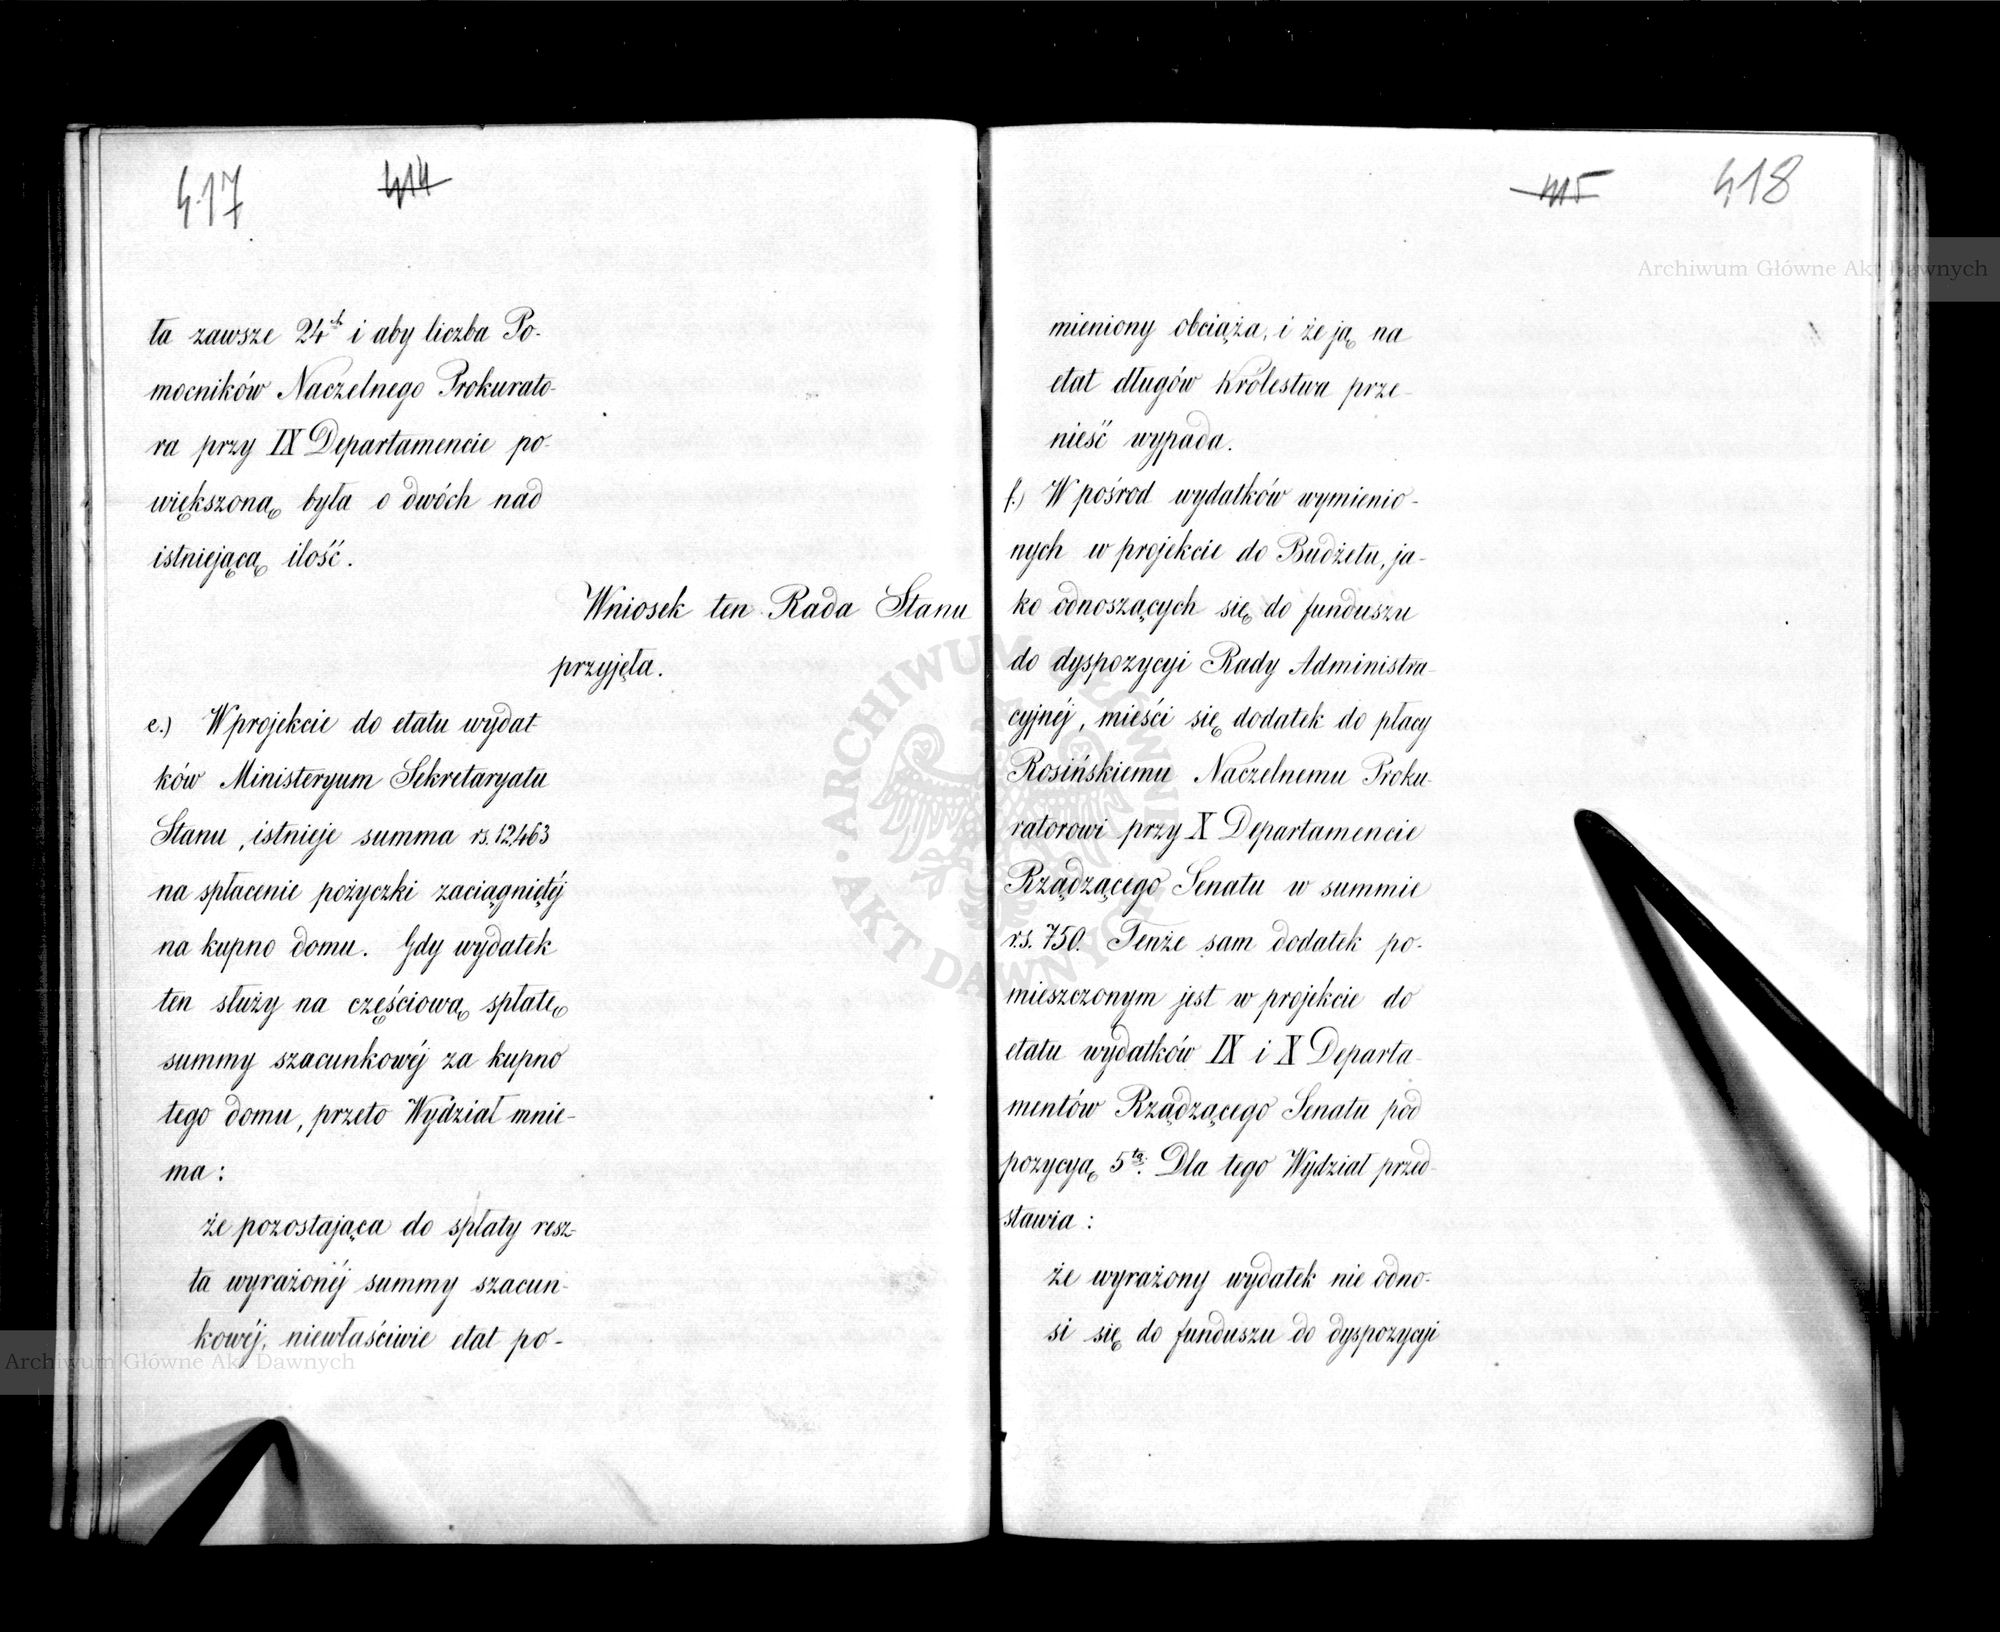 417
414
ła zawsze 24ch i aby liczba Po-
mocników Naczelnego Prokurato-
ra przy IX Departamencie po-
większoną była o dwóch nad
istniejącą ilość.
Wniosek ten Rada Stanu
przyjęła.
e.) W projekcie do etatu wydat
ków Ministeryum Sekretaryatu
Stanu, istnieje summa rs. 12,463
na spłacenie pożyczki zaciągniętéj
na kupno domu. Gdy wydatek
ten służy na częściową spłatę
summy szacunkowéj za kupno
tego domu, przeto Wydział mnie-
ma:
że pozostająca do spłaty resz-
ta wyrażonéj summy szacun-
kowéj, niewłaściwie etat po-
415
418
mieniony obciąża, i że ją na
etat długów Królestwa prze-
nieść wypada.
f.) W pośrod wydatków wymienio-
nych w projekcie do Budżetu, ja-
ko odnoszących się do funduszu
do dyspozycyi Rady Administra-
cyjnéj, mieści się dodatek do płacy
Rosińskiemu Naczelnemu Proku-
ratorowi przy X Departamencie
Rządzącego Senatu w summie
rs. 750. Tenże sam dodatek po-
mieszczonym jest w projekcie do
etatu wydatków IX i X Departa-
mentów Rządzącego Senatu pod
pozycyą 5tą. Dla tego Wydział przed-
stawia:
że wyrażony wydatek nie odno-
si się do funduszu do dyspozycyi
Archiwum Główne Akt Dawnych
Archiwum Główne Akt Dawnych
ARCHIWUM GŁÓWNE
AKT DAWNYCH